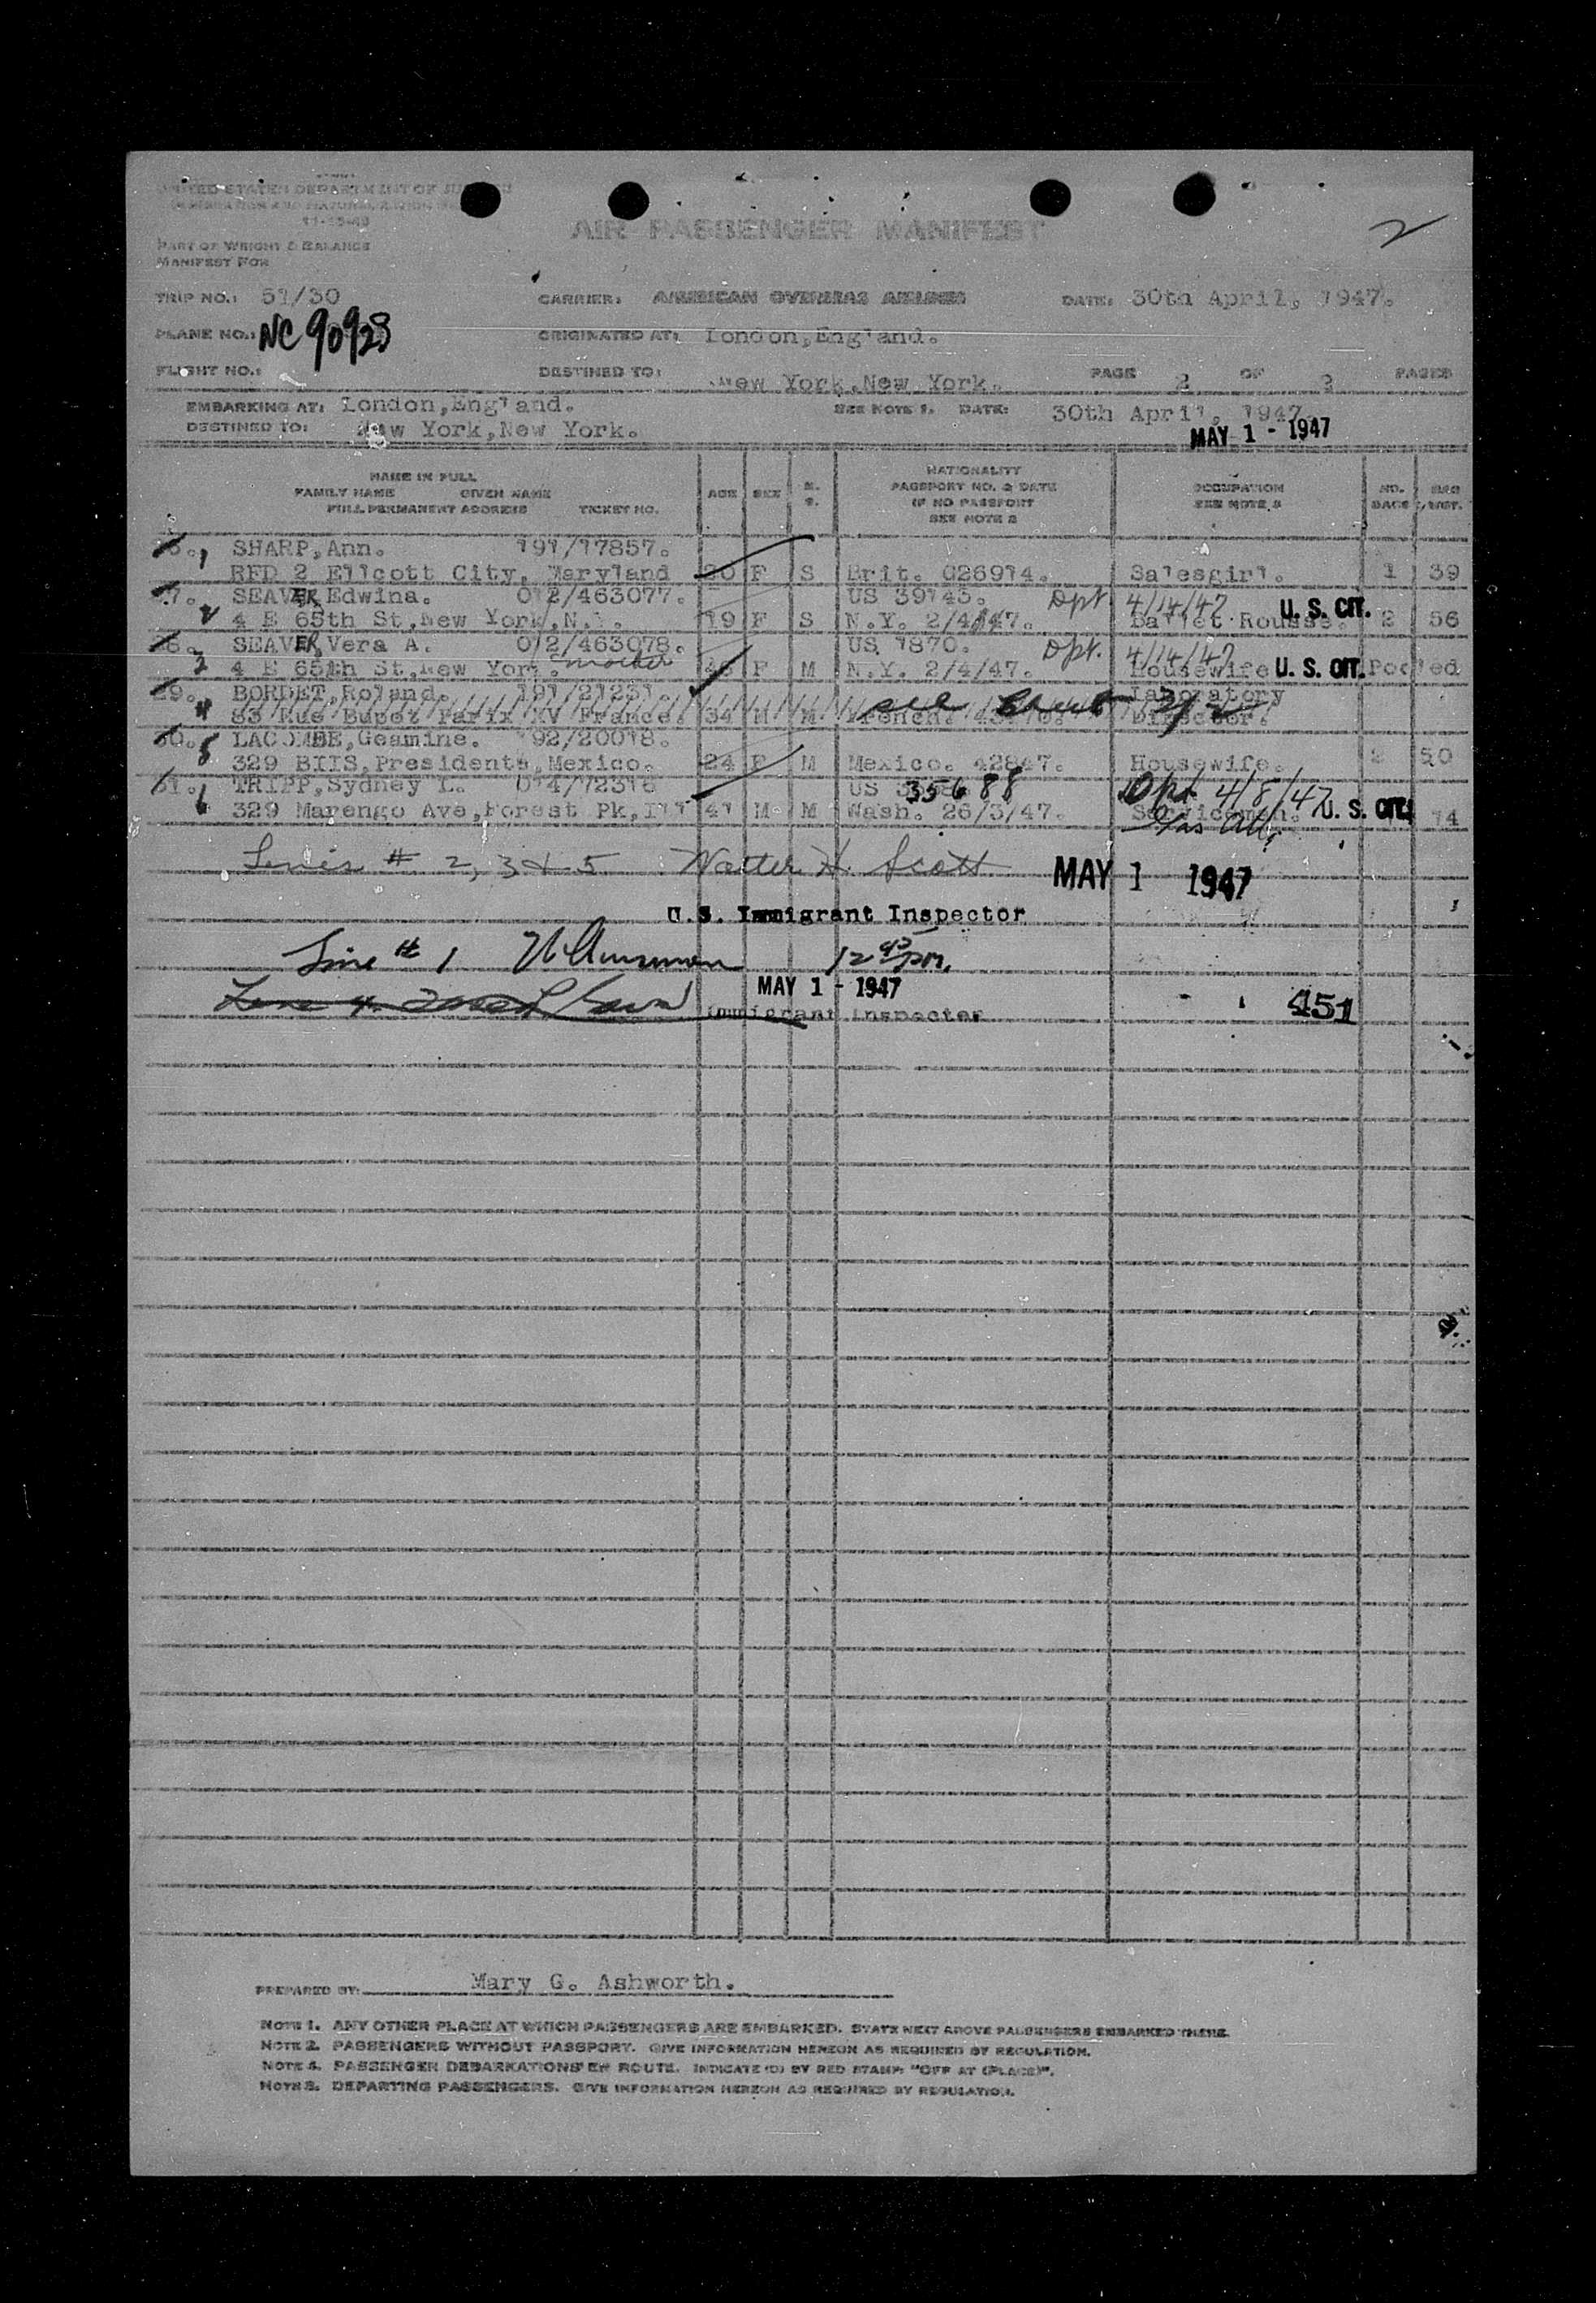 UNITED STATES DEPARTMENT OF
11-15-43
AIR PASSENGER MANIFEST
2
PART OF WEIGHT & BALANCE
MANIFEST FOR
TRIP NO.: 51/30 CARRIER: AMERICAN OVERSEAS AIRLINES DATE: 30th April, 1947.
PLANE NO.: NC 90923 ORIGINATED AT: London, England.
FLIGHT NO.: DESTINED TO: New York, New York. PAGE 2 OF PAGES
EMBARKING AT: London, England. SEE NOTE 1. DATE: 30th April, 1947.
DESTINED TO: New York, New York. MAY 1 - 1947
NAME IN FULL
FAMILY NAME GIVEN NAME
FULL PERMANENT ADDRESS TICKET NO.
AGE SEX M. S.
NATIONALITY
PASSPORT NO. & DATE
IF NO PASSPORT
SEE NOTE 2
OCCUPATION
SEE NOTE 3
NO. BAGS
1 SHARP, Ann. 191/17857.
RFD 2 Ellcott City, Maryland F S Brit. C26914. Salesgirl. 1 39
SEAVER, Edwina. 012/463077. US 39143. Dpt. 4/14/47 U. S. CIT.
4 E 65th St, New York, N.Y. 19 F S N.Y. 2/4/47. Ballet Rousse. 2 56
SEAVER, Vera A. 012/463078. US 1870. Dpt. 4/14/47
4 E 65th St, New York. mother F M N.Y. 2/4/47. Housewife U. S. CIT. Pooled
29. BORDET, Roland. 191/21231. Laboratory
4 83 Rue Bupez Parix XV France. 34 M M French. see Director.
30. LACOMBE, Geamine. 192/20018.
5 329 BIIS, Presidents, Mexico. 24 F M Mexico. 42847. Housewife. 2 50
31. TRIPP, Sydney L. 014/72316 US 35688 Dpt. 4/8/47
6 329 Marengo Ave, Forest Pk, Ill 41 M M Wash. 26/3/47. Serviceman. U. S. CIT. 74
# 2, 3 & 5 Walter H. Scott MAY 1 1947
U.S. Immigrant Inspector
Line # 1 12 45 pm.
MAY 1 - 1947
Immigrant Inspector 451
PREPARED BY: Mary G. Ashworth.
NOTE 1. ANY OTHER PLACE AT WHICH PASSENGERS ARE EMBARKED. STATE NEXT ABOVE PASSENGERS EMBARKED THERE.
NOTE 2. PASSENGERS WITHOUT PASSPORT. GIVE INFORMATION HEREON AS REQUIRED BY REGULATION.
NOTE 4. PASSENGER DEBARKATIONS EN ROUTE. INDICATE (D) BY RED STAMP: "OFF AT (PLACE)".
NOTE 3. DEPARTING PASSENGERS. GIVE INFORMATION HEREON AS REQUIRED BY REGULATION.